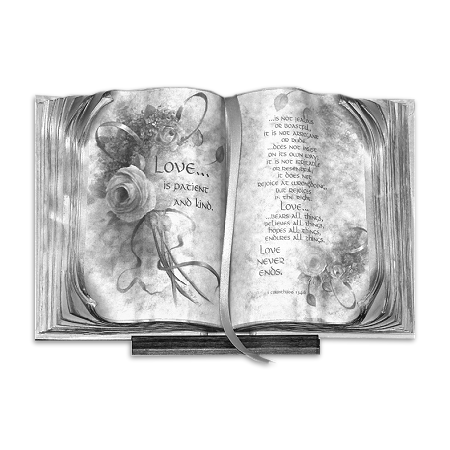 Love...
is patient
and kind.
...is not jealous
or boastful.
it is not arrogant
or rude.
...does not insist
on its own way;
it is not irritable
or resentful.
it does not
rejoice at wrongdoing,
but rejoices
in the right.
Love...
...bears all things,
believes all things,
hopes all things,
endures all things.
Love
never
ends.